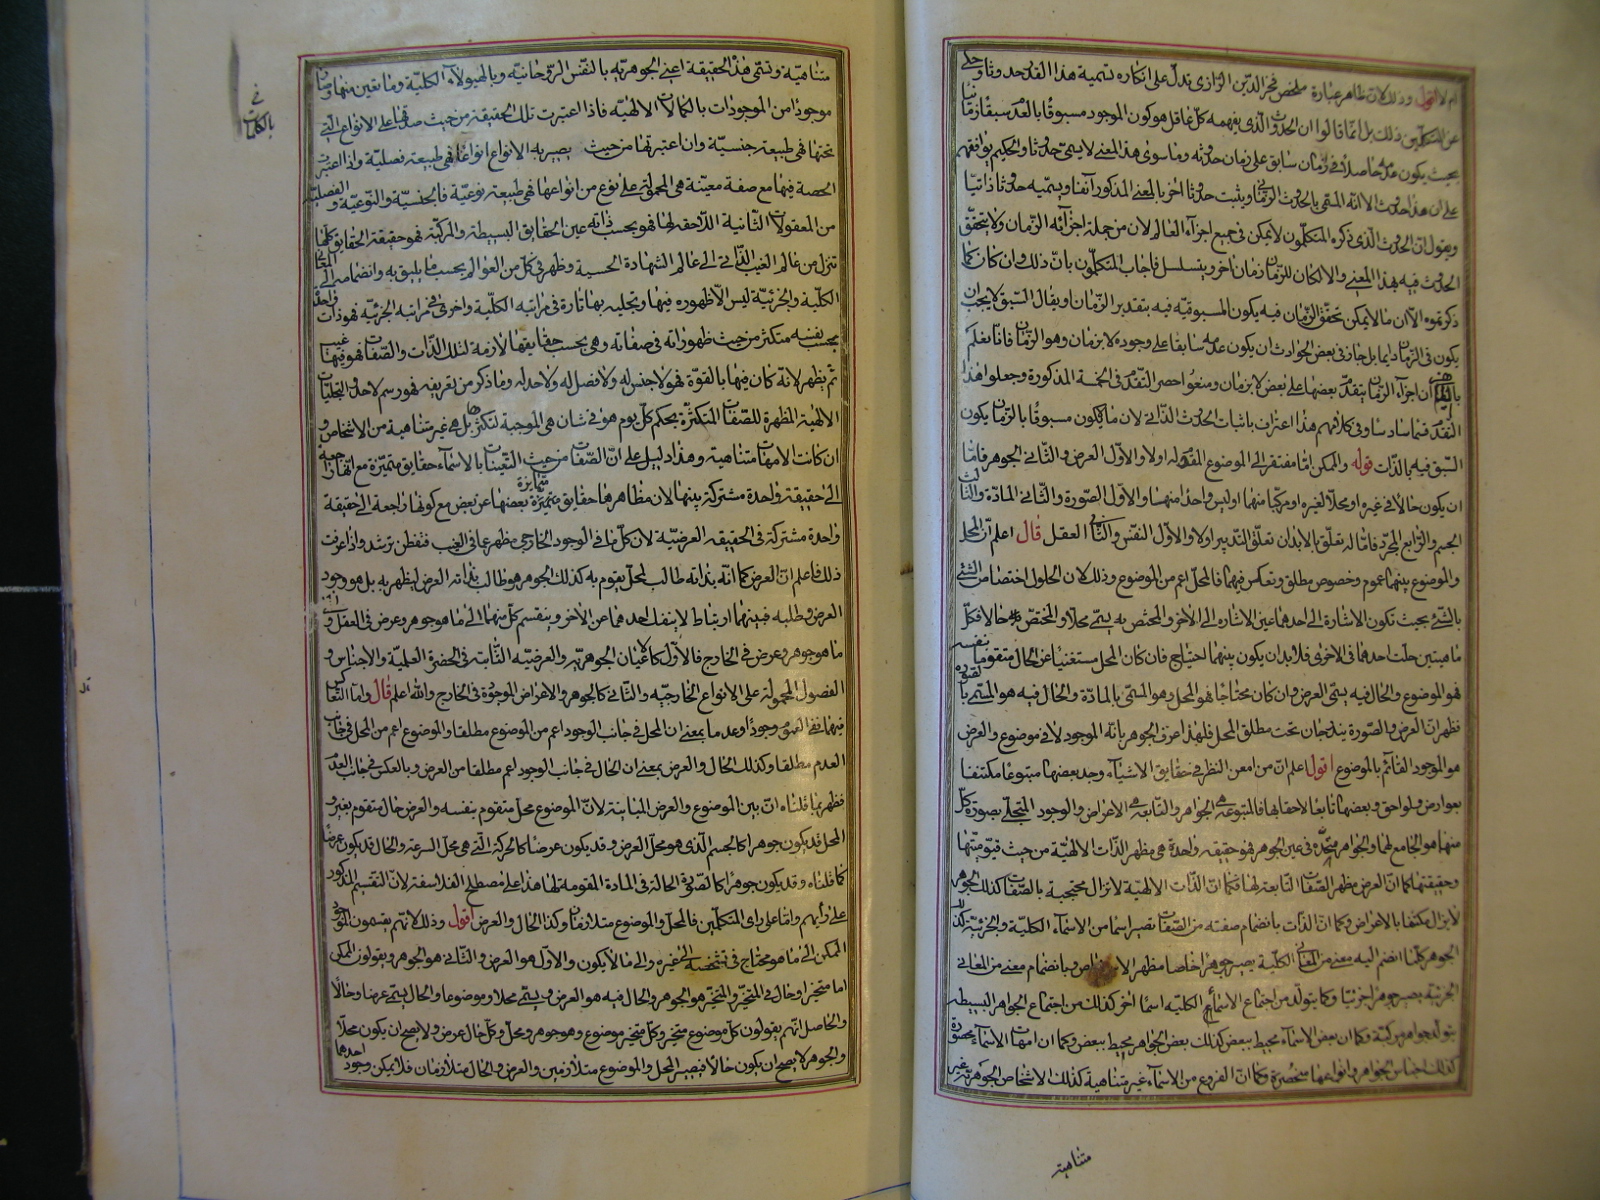 ام لا اقول وذلك لان ظاهر عبارة ملخص فخر الدين الرازى تدل على انكاره تسمية هذا القدر حدوثا وحكى
عن المتكلمين ذلك بل انما قالوا ان الحدوث الذى يفهمه كل عاقل هو كون الموجود مسبوقا بالعدم سبقا زمانيا
بحيث يكون عدمه حاصلا فى زمان سابق على زمان حدوثه وما سوى هذا المعنى لا يسمى حدوثا والحكيم يوافقهم
على ان هذا حدوث الا انه المسمى بالحدوث الزمانى ويثبت حدوثا اخر بالمعنى المذكور آنفا ويسميه حدوثا ذاتيا
ويقول ان الحدوث الذى ذكره المتكلمون لا يمكن فى جميع اجزاء العالم لان من جملة اجزائه الزمان ولا يتحقق
الحدوث فيه بهذا المعنى والا لكان للزمان زمان آخر ويتسلسل فاجاب المتكلمون بان ذلك وان كان كما
ذكرتموه الا ان ما لا يمكن تحقق الزمان فيه يكون المسبوقية فيه بتقدير الزمان ويقال السبق لا يجب ان
يكون فى الزمان دايما بل جاز فى بعض الحوادث ان يكون عدمه سابقا على وجوده لا بزمان وهو الزمان فانا نعلم
ان اجزاء الزمان يتقدم بعضها على بعض لا بزمان ومنعوا حصر التقدم فى الخمسة المذكورة وجعلوا هذا
التقدم قسما سادسا وفى كلامهم هذا اعتراف باثبات الحدوث الذاتى لان ما يكون مسبوقا بالزمان يكون
السبق فيه بالذات قوله والممكن اما مفتقر الى الموضوع المقوله اولا والاول العرض والثانى الجوهر فاما
ان يكون حالا فى غيره او محلا لغيره او مركبا منهما او ليس واحدا منها والاول الصورة والثانى المادة والثالث
الجسم والرابع المجرد فاما له تعلق بالابدان تعلق التدبير اولا والاول النفس والثانى العقل قال اعلم ان المحل
والموضوع بينهما عموم وخصوص مطلق وتعاكس فيهما فالمحل اعم من الموضوع وذلك لان الحلول اختصاص الشئ
بالشئ بحيث تكون الاشارة الى احدهما عين الاشارة الى الآخر والمختص به يسمى محلا والمختص حالا فكل
ماهيتين حلت احدهما فى الاخرى فلابد ان يكون بينهما احتياج فان كان المحل مستغنيا عن الحال متقوما بنفسه
فهو الموضوع والحال فيه يسمى العرض وان كان محتاجا فهو المحل وهو المسمى بالمادة والحال فيه هو المسمى بالصورة
فظهر ان العرض والصورة يندرجان تحت مطلق المحل فلهذا عرف الجوهر بانه الموجود لا فى موضوع والعرض
هو الموجود القائم بالموضوع اقول اعلم ان من امعن النظر فى حقايق الاشياء وجد بعضها متبوعا مكتنفا
بعوارض ولواحق وبعضها تابعا لاحقا بها فالمتبوعه هى الجواهر والتابعه هى الاعراض والوجود المتجلى بصورة كل
منهما هو الجامع لهما والجواهر متحدة فى عين الجوهر فهو حقيقة واحدة هى مظهر الذات الالهية من حيث قيوميتها
وحقيقتها كما ان العرض مظهر الصفات التابعة لها فكما ان الذات الالهية لا تزال محتجبة بالصفات كذلك الجوهر
لا يزال مكتنفا بالاعراض وكما ان الذات بانضمام صفته من الصفات تصير اسما من الاسماء الكلية والجزئية كذلك
الجوهر كلما انضم اليه معنى من المعانى الكلية يصير جوهرا خاصا مظهر وبانضمام معنى من المعانى
الجزئية يصير جوهرا جزئيا وكما يتولد من اجتماع الاسماء الكلية اسما اخر كذلك من اجتماع الجواهر البسيطة
يتولد جواهر مركبة وكما ان بعض الاسماء محيط ببعض كذلك بعض الجواهر محيط ببعض وكما ان امهات الاسماء محصورة
كذلك اجناس الجواهر وانواعها منحصرة وكما ان الفروع من الاسماء غير متناهية كذلك الاشخاص الجوهرية غير
متناهية
متناهية وتسمى هذه الحقيقة اعنى الجوهرية بالنفس الروحانية وبالهيولاء الكلية وما تعين منها وصار
موجودا من الموجودات بالكمالات الالهية فاذا اعتبرت تلك الحقيقة من حيث صدقها على الانواع التى
تحتها فهى طبيعة جنسية وان اعتبرتها من حيث يصير به الانواع انواعا فهى طبيعة فصلية واذا اعتبرت
الحصة فيها مع صفة معينة هى المحمولة على نوع من انواعها فهى طبيعة نوعية فالجنسية والنوعية والفصلية
من المعقولات الثانية اللاحقة لها فهو بحسب ذاته عين الحقايق البسيطة والمركبة فهو حقيقة الحقايق كلها
تنزل من عالم الغيب الذاتى الى عالم الشهادة الحسية وظهر فى كل من العوالم بحسب ما يليق به وانضمامه الى المعانى
الكلية والجزئية ليس الا ظهوره فيها وتجليه بها تارة فى مراتبه الكلية واخرى فى مراتبه الجزئية فهو ذات واحدة
بحسب نفسه متكثر من حيث ظهوراته فى صفاته وهى بحسب حقايقها لازمة لتلك الذات والصفات فهو فيها غيب
ثم يظهر لانه كان فيها بالقوة فهو لا جنس له ولا فصل له ولا حد له وما ذكر من تعريفه فهو رسم لا حد والتجليات
الالهية المظهرة للصفات المتكثرة بحكم كل يوم هو فى شان هى الموجبة لتكثرها بل هى غير متناهية من الاشخاص و
ان كانت الامهات متناهية وهذا دليل على ان الصفات من حيث التعينات بالاسماء حقايق متميزة مع انها راجعة
الى حقيقة واحدة مشتركة بينها لان مظاهرها حقايق متميزة متمايزة بعضها عن بعض مع كونها راجعة الى حقيقة
واحدة مشتركة فى الحقيقة العرضية لان كل ما فى الوجود الخارجى مظهر عما فى الغيب فتفطن ترشد واذا عرفت
ذلك فاعلم ان العرض كما انه بذاته طالب لمحل يقوم به كذلك الجوهر هو طالب بذاته العرض ليظهر به بل هو وجود
العرض وطلبه فبينهما ارتباط لا ينفك احدهما عن الآخر وينقسم كل منهما الى ما هو جوهر وعرض فى العقل والى
ما هو جوهر وعرض فى الخارج فالاول كالاعيان الجوهرية والعرضية الثابته فى الحضرة العلمية والاجناس و
الفصول المحمولة على الانواع الخارجية والثانى كالجوهر والاعراض الموجودة فى الخارج والله اعلم قال واما التعاكس
فيها ففى العموم وجودا وعدما بمعنى ان المحل فى جانب الوجود اعم من الموضوع مطلقا والموضوع اعم من المحل فى جانب
العدم مطلقا وكذلك الحال والعرض بمعنى ان الحال فى جانب الوجود اعم مطلقا من العرض وبالعكس فى جانب العدم
فظهر بما قلناه ان بين الموضوع والعرض المباينة لان الموضوع محل متقوم بنفسه والعرض حال متقوم بغيره و
المحل قد يكون جوهرا كالجسم الذى هو محل العرض وقد يكون عرضا كالحركة التى هى محل السرعة والحال قد يكون عرضا
كما قلناه وقد يكون جوهرا كالصورة الحالة فى المادة المقومة لها هذا على مصطلح الفلاسفة لان التقسيم المذكور
على رأيهم واما على راى المتكلمين فالمحل والموضوع متلازمان وكذا الحال والعرض اقول وذلك لانهم يقسمون الموجود
الممكن الى ما هو محتاج فى تشخصه الى غيره والى ما لا يكون والاول هو العرض والثانى هو الجوهر ويقولون الممكن
اما متحيز او حال فى المتحيز والمتحيز هو الجوهر والحال فيه هو العرض ويسمى محلا وموضوعا والحال يسمى عرضا وحالا
والحاصل انهم يقولون كل موضوع متحيز وكل متحيز موضوع وهو جوهر ومحل وكل حال عرض ولا يصح ان يكون محلا
والجوهر لا يصح ان يكون حالا فيصير المحل والموضوع متلازمين والعرض والحال متلازمان فلا يمكن وجود احدهما